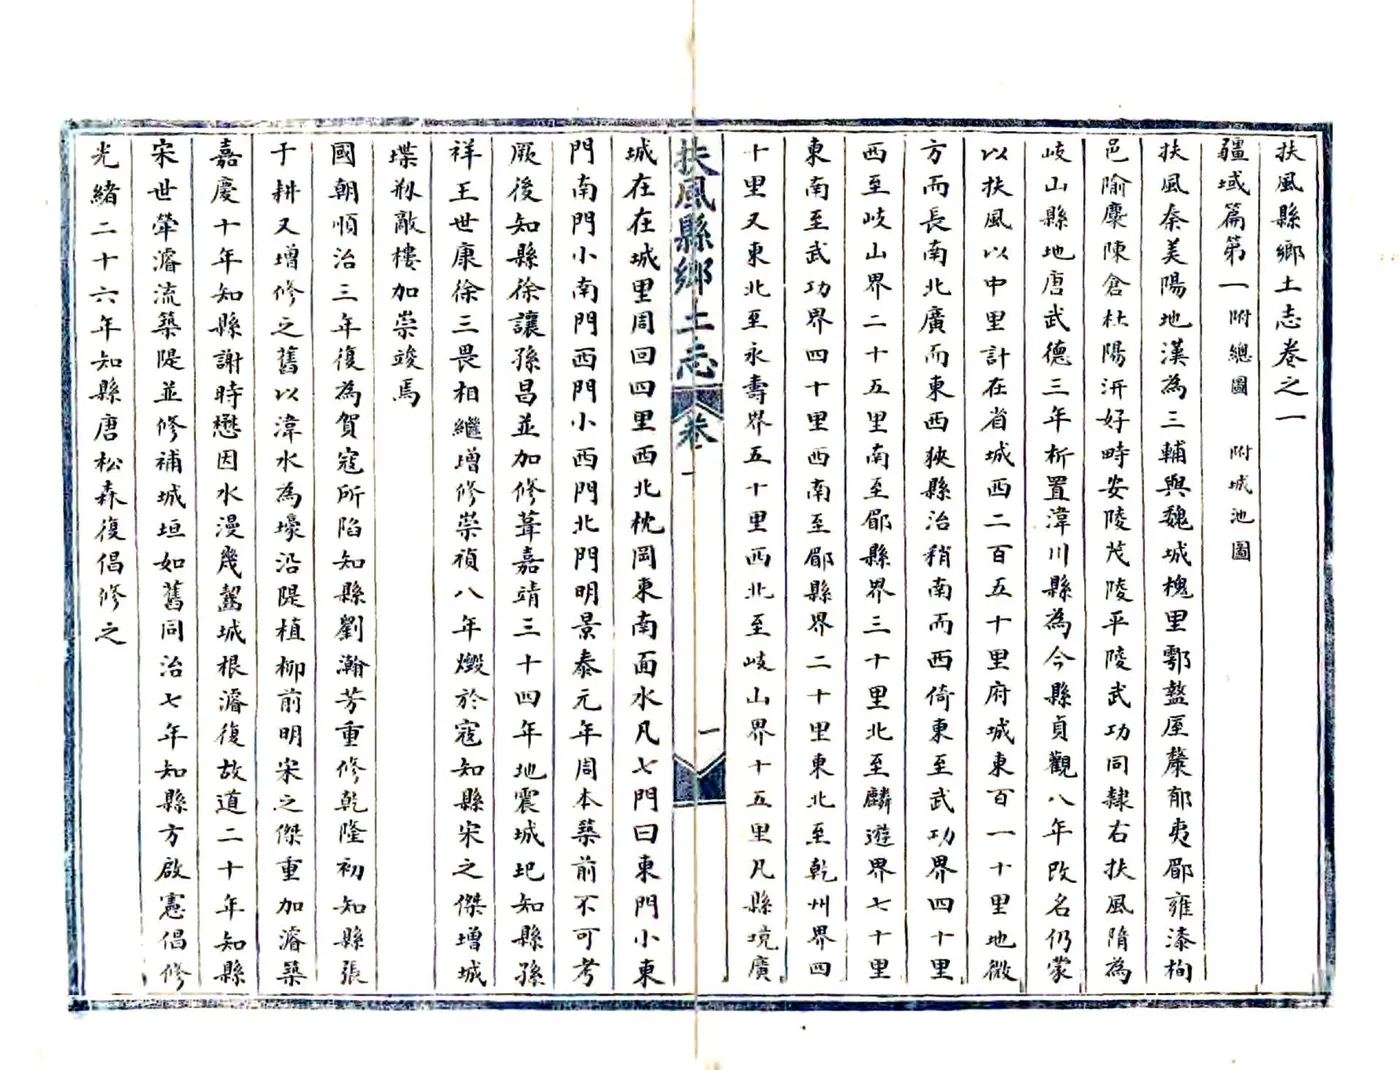 扶風縣鄉土志卷之一
疆域篇第一 附總圖 附城池圖
扶風秦美陽地漢為三輔與魏城槐里鄠盩厔斄郁夷郿雍漆栒
邑隃麋陳倉杜陽汧好畤安陵茂陵平陵武功同隸右扶風隋為
岐山縣地唐武德三年析置湋川縣為今縣貞觀八年改名仍蒙
以扶風以中里計在省城西二百五十里府城東百一十里地微
方而長南北廣而東西狹縣治稍南而西倚東至武功界四十里
西至岐山界二十五里南至郿縣界三十里北至麟遊界七十里
東南至武功界四十里西南至郿縣界二十里東北至乾州界四
十里又東北至永壽界五十里西北至岐山界十五里凡縣境廣
扶風縣鄉土志 卷一 一
城在在城里周回四里西北枕岡東南面水凡七門曰東門小東
門南門小南門西門小西門北門明景泰元年周本築前不可考
厥後知縣徐讓孫昌並加修葺嘉靖三十四年地震城圯知縣孫
祥王世康徐三畏相繼增修崇禎八年燬於寇知縣宋之傑增城
堞敵樓加崇竣焉
國朝順治三年復為賀寇所陷知縣劉瀚芳重修乾隆初知縣張
于耕又增修之舊以湋水為壕沿隄植柳前明宋之傑重加濬築
嘉慶十年知縣謝時懋因水漫幾齧城根濬復故道二十年知縣
宋世犖濬流築隄並修補城垣如舊同治七年知縣方啟憲倡修
光緒二十六年知縣唐松森復倡修之